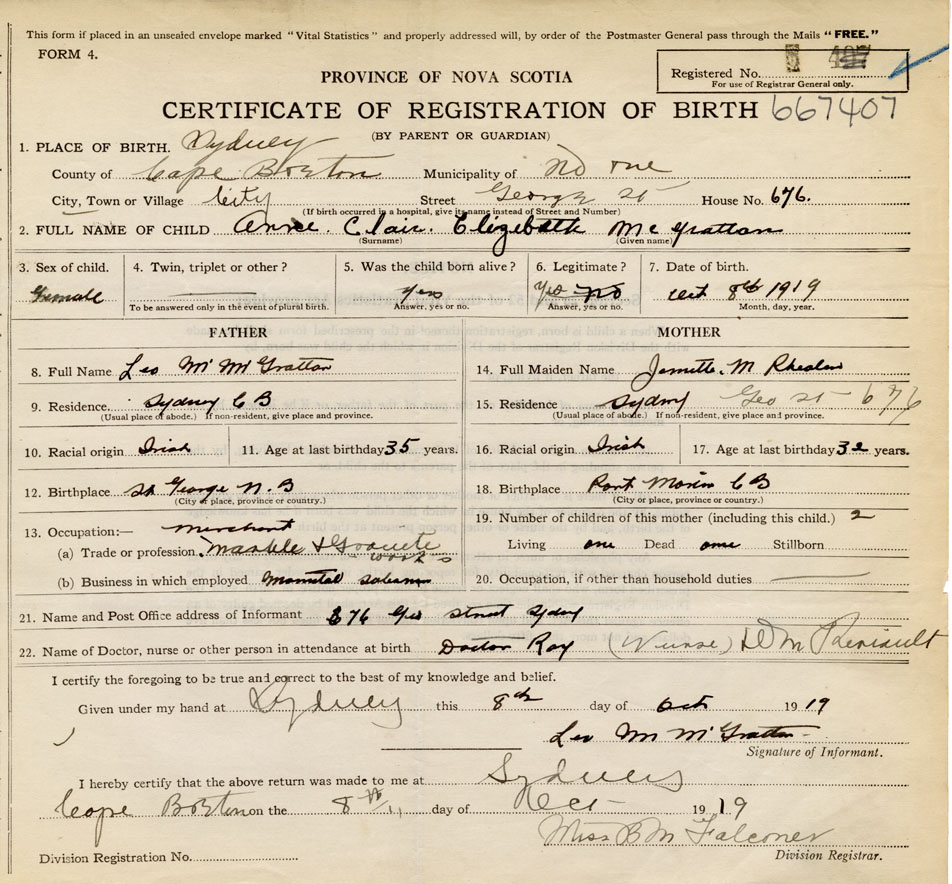 This form if placed in an unsealed envelope marked "Vital Statistics" and properly addressed will, by order of the Postmaster General pass through the Mails "FREE."
FORM 4.
Registered No.
For use of Registrar General only.
PROVINCE OF NOVA SCOTIA
CERTIFICATE OF REGISTRATION OF BIRTH 667407
(BY PARENT OR GUARDIAN)
1. PLACE OF BIRTH. Sydney
County of Cape Breton Municipality of No one
City, Town or Village City Street George St House No. 676.
(If birth occurred in a hospital, give its name instead of Street and Number)
2. FULL NAME OF CHILD Anne. Clair. Elizebath McGrattan
(Surname) (Given name)
3. Sex of child. 4. Twin, triplet or other? 5. Was the child born alive? 6. Legitimate? 7. Date of birth.
Female yes Yes No Oct 8th 1919
To be answered only in the event of plural birth. Answer, yes or no. Answer, yes or no. Month, day, year.
FATHER MOTHER
8. Full Name Leo Mc Grattan
14. Full Maiden Name M
9. Residence. Sydney C B
(Usual place of abode.) If non-resident, give place and province.
15. Residence Sydney Geo St 676
(Usual place of abode.) If non-resident, give place and province.
10. Racial origin Irish 11. Age at last birthday 35 years.
16. Racial origin Irish 17. Age at last birthday 32 years.
12. Birthplace St George N. B
(City or place, province or country.)
18. Birthplace Port Morien C B
(City or place, province or country.)
13. Occupation:— Merchant
(a) Trade or profession. Marble & Granite works
(b) Business in which employed
19. Number of children of this mother (including this child.) 2
Living one Dead one Stillborn
20. Occupation, if other than household duties
21. Name and Post Office address of Informant 676 Geo Street Sydney
22. Name of Doctor, nurse or other person in attendance at birth Doctor Roy (Nurse)
I certify the foregoing to be true and correct to the best of my knowledge and belief.
Given under my hand at Sydney this 8th day of Oct 19 19
Leo Mc Grattan
Signature of Informant.
I hereby certify that the above return was made to me at Sydney
Cape Breton on the 8th day of Oct 19 19
Miss B M Falconer
Division Registration No. Division Registrar.